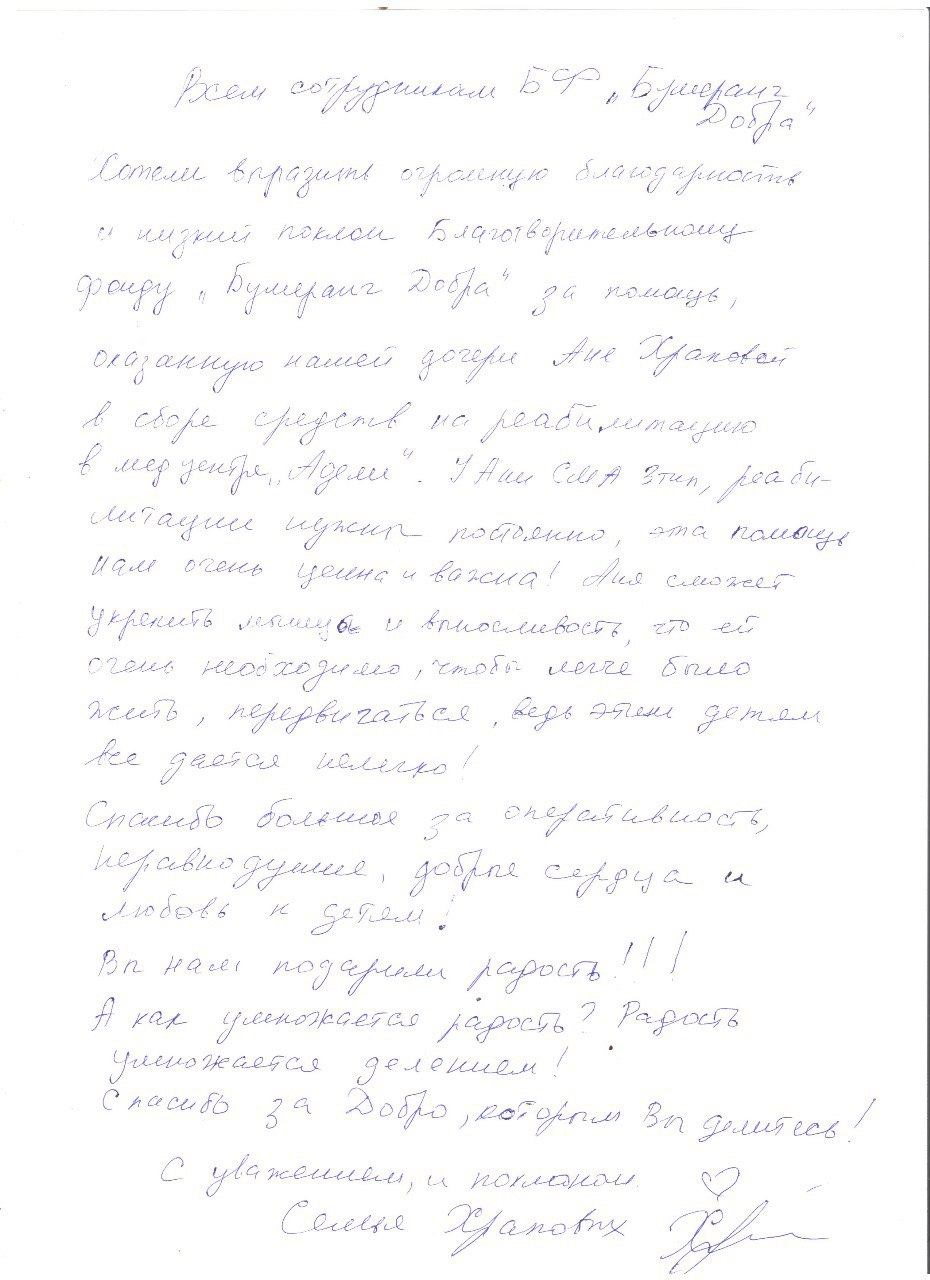 Всем сотрудникам БФ „Бумеранг
Добра"
Хотели выразить огромную благодарность
и низкий поклон Благотворительному
фонду „Бумеранг Добра" за помощь,
оказанную нашей дочери Ане Храповой
в сборе средств на реабилитацию
в медцентре „Адели". У Ани СМА 3тип, реаби-
литации нужны постоянно, эта помощь
нам очень ценна и важна! Аня сможет
укрепить мышцы и выносливость, что ей
очень необходимо, чтобы легче было
жить, передвигаться, ведь этим детям
все дается нелегко!
Спасибо большое за оперативность,
неравнодушие, добрые сердца и
любовь к детям!
Вы нам подарили радость!!!
А как умножается радость? Радость
умножается делением!
Спасибо за Добро, которым Вы делитесь!
С уважением, и поклоном
Семья Храповых